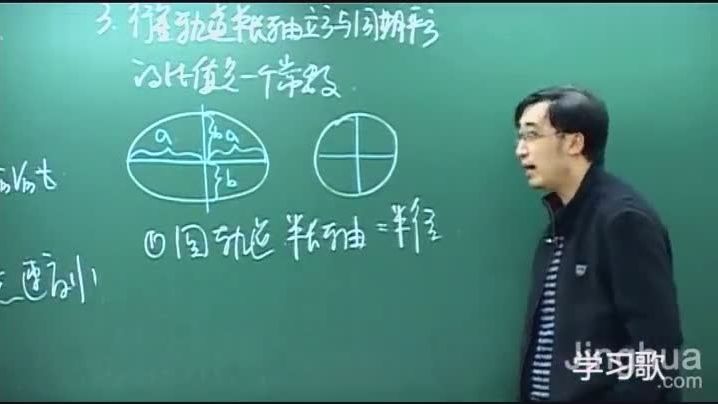 3. 行星轨道半长轴立方与周期平方
的比值是一个常数.
a a b b
① 圆轨道 半长轴 = 半径
速度小
Jinghua
.com
学习歌